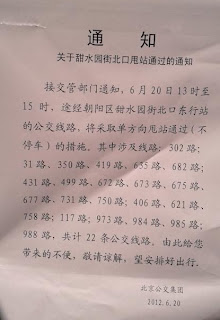 通 知
关于甜水园街北口甩站通过的通知
接交管部门通知，6 月 20 日 13 时至
15 时，途经朝阳区甜水园街北口东行站
的公交线路，将采取单方向甩站通过（不
停车）的措施。其中涉及线路：302 路；
31 路、350 路、419 路、635 路、682 路；
431 路、499 路、672 路、673 路、675 路、
677 路、731 路、750 路；406 路、621 路、
758 路；117 路；973 路、984 路、985 路；
988 路，共计 22 条公交线路。由此给您
带来的不便，敬请谅解，望安排好出行。
北京公交集团
2012.6.20